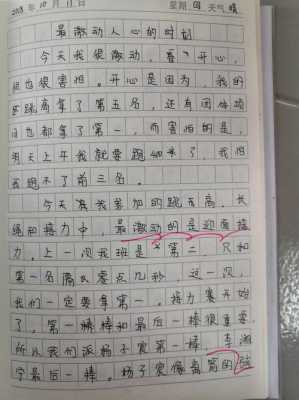 2018年10月11日 星期四 天气晴
最激动人心的时刻
今天我很激动，很开心，
但也很害怕。开心是因为，我的
跳高拿了第五名，还有团体项
目也都拿了第一，而害怕的是，
明天上午我就要跑400米了，我怕
我跑不了前三名。
今天有我参加的跳高、长
绳和接力中，最激动的是迎面接
力。上一次我班是第二，只和
第一名离零点几秒，这一次，
我们一定要拿第一。接力赛开始
了，第一棒和最后一棒很重要，
所以我们派杨子宸第一棒，李湘
宁最后一棒。杨子宸像离箭的弦